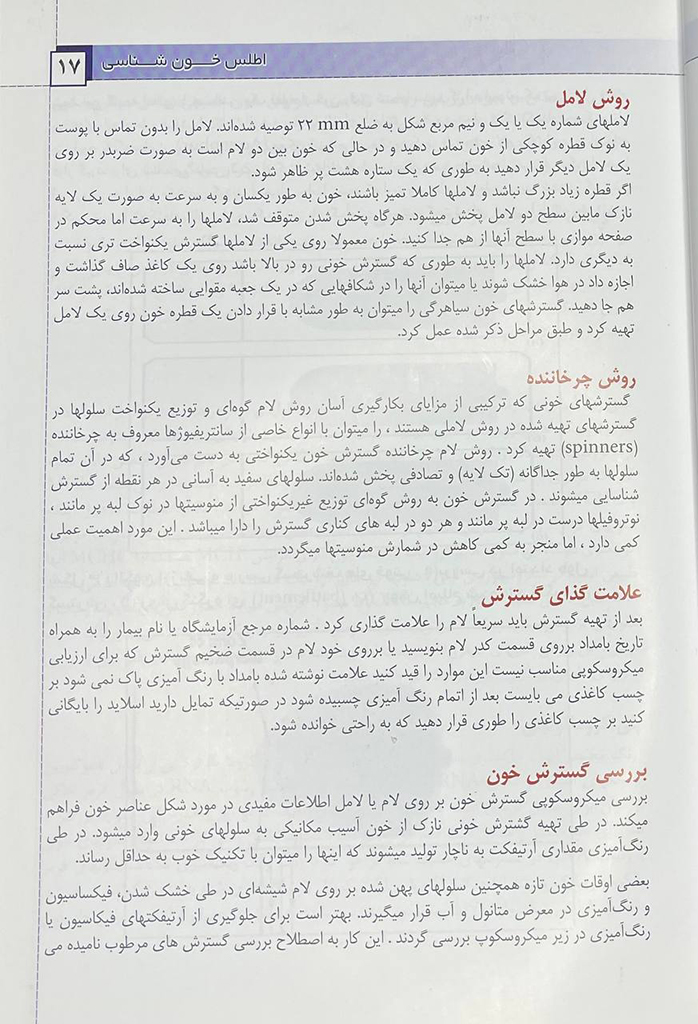 اطلس خون شناسی
۱۷
روش لامل
لاملهای شماره یک یا یک و نیم مربع شکل به ضلع ۲۲ mm توصیه شده‌اند. لامل را بدون تماس با پوست
به نوک قطره کوچکی از خون تماس دهید و در حالی که خون بین دو لام است به صورت ضربدر بر روی
یک لامل دیگر قرار دهید به طوری که یک ستاره هشت پر ظاهر شود.
اگر قطره زیاد بزرگ نباشد و لاملها کاملا تمیز باشند، خون به طور یکسان و به سرعت به صورت یک لایه
نازک مابین سطح دو لامل پخش میشود. هرگاه پخش شدن متوقف شد، لاملها را به سرعت اما محکم در
صفحه موازی با سطح آنها از هم جدا کنید. خون معمولا روی یکی از لاملها گسترش یکنواخت تری نسبت
به دیگری دارد. لاملها را باید به طوری که گسترش خونی رو در بالا باشد روی یک کاغذ صاف گذاشت و
اجازه داد در هوا خشک شوند یا میتوان آنها را در شکافهایی که در یک جعبه مقوایی ساخته شده‌اند، پشت سر
هم جا دهید. گسترشهای خون سیاهرگی را میتوان به طور مشابه با قرار دادن یک قطره خون روی یک لامل
تهیه کرد و طبق مراحل ذکر شده عمل کرد.
روش چرخاننده
گسترشهای خونی که ترکیبی از مزایای بکارگیری آسان روش لام گوه‌ای و توزیع یکنواخت سلولها در
گسترشهای تهیه شده در روش لاملی هستند ، را میتوان با انواع خاصی از سانتریفیوژها معروف به چرخاننده
(spinners) تهیه کرد . روش لام چرخاننده گسترش خون یکنواختی به دست می‌آورد ، که در آن تمام
سلولها به طور جداگانه (تک لایه) و تصادفی پخش شده‌اند. سلولهای سفید به آسانی در هر نقطه از گسترش
شناسایی میشوند . در گسترش خون به روش گوه‌ای توزیع غیریکنواختی از منوسیتها در نوک لبه پر مانند ،
نوتروفیلها درست در لبه پر مانند و هر دو در لبه های کناری گسترش را دارا میباشد . این مورد اهمیت عملی
کمی دارد ، اما منجر به کمی کاهش در شمارش منوسیتها میگردد.
علامت گذای گسترش
بعد از تهیه گسترش باید سریعاً لام را علامت گذاری کرد . شماره مرجع آزمایشگاه یا نام بیمار را به همراه
تاریخ بامداد برروی قسمت کدر لام بنویسید یا برروی خود لام در قسمت ضخیم گسترش که برای ارزیابی
میکروسکوپی مناسب نیست این موارد را قید کنید علامت نوشته شده بامداد با رنگ آمیزی پاک نمی شود بر
چسب کاغذی می بایست بعد از اتمام رنگ آمیزی چسبیده شود در صورتیکه تمایل دارید اسلاید را بایگانی
کنید بر چسب کاغذی را طوری قرار دهید که به راحتی خوانده شود.
بررسی گسترش خون
بررسی میکروسکوپی گسترش خون بر روی لام یا لامل اطلاعات مفیدی در مورد شکل عناصر خون فراهم
میکند. در طی تهیه گشترش خونی نازک از خون آسیب مکانیکی به سلولهای خونی وارد میشود. در طی
رنگ‌آمیزی مقداری آرتیفکت به ناچار تولید میشوند که اینها را میتوان با تکنیک خوب به حداقل رساند.
بعضی اوقات خون تازه همچنین سلولهای پهن شده بر روی لام شیشه‌ای در طی خشک شدن، فیکساسیون
و رنگ‌آمیزی در معرض متانول و آب قرار میگیرند. بهتر است برای جلوگیری از آرتیفکتهای فیکاسیون یا
رنگ‌آمیزی در زیر میکروسکوپ بررسی گردند . این کار به اصطلاح بررسی گسترش های مرطوب نامیده می